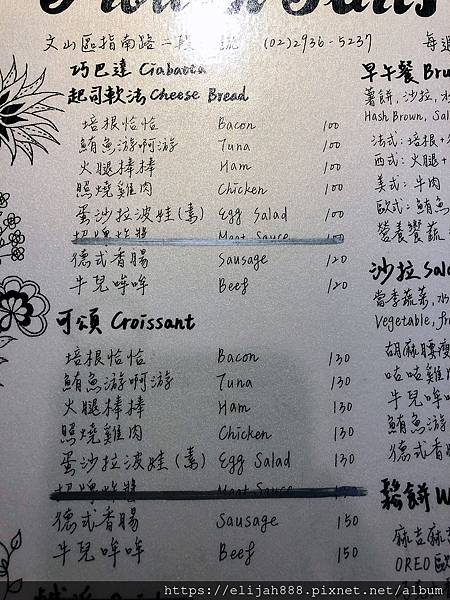 文山區指南路二段 號 (02)2936-5237 每週
巧巴達 Ciabatta
起司軟法 Cheese Bread
培根恰恰 Bacon 100
鮪魚游啊游 Tuna 100
火腿棒棒 Ham 100
照燒雞肉 Chicken 100
蛋沙拉波娃(素) Egg Salad 100
招牌炸醬 Meat Sauce 100
德式香腸 Sausage 120
牛兒哞哞 Beef 120
可頌 Croissant
培根恰恰 Bacon 130
鮪魚游啊游 Tuna 130
火腿棒棒 Ham 130
照燒雞肉 Chicken 130
蛋沙拉波娃(素) Egg Salad 130
招牌炸醬 Meat Sauce
德式香腸 Sausage 150
牛兒哞哞 Beef 150
早午餐 Bru
薯餅,沙拉,
Hash Brown, Sal
法式:培根+
西式:火腿+
美式:牛肉
歐式:鮪魚
營養餐蔬
沙拉 Sala
當季蔬菜,水
Vegetable, fr
胡麻腰瘦
咕咕雞
牛兒哞
鮪魚游
德式香
鬆餅 W
麻吉麻
OREO歐
https://elijah888.pixnet.net/album